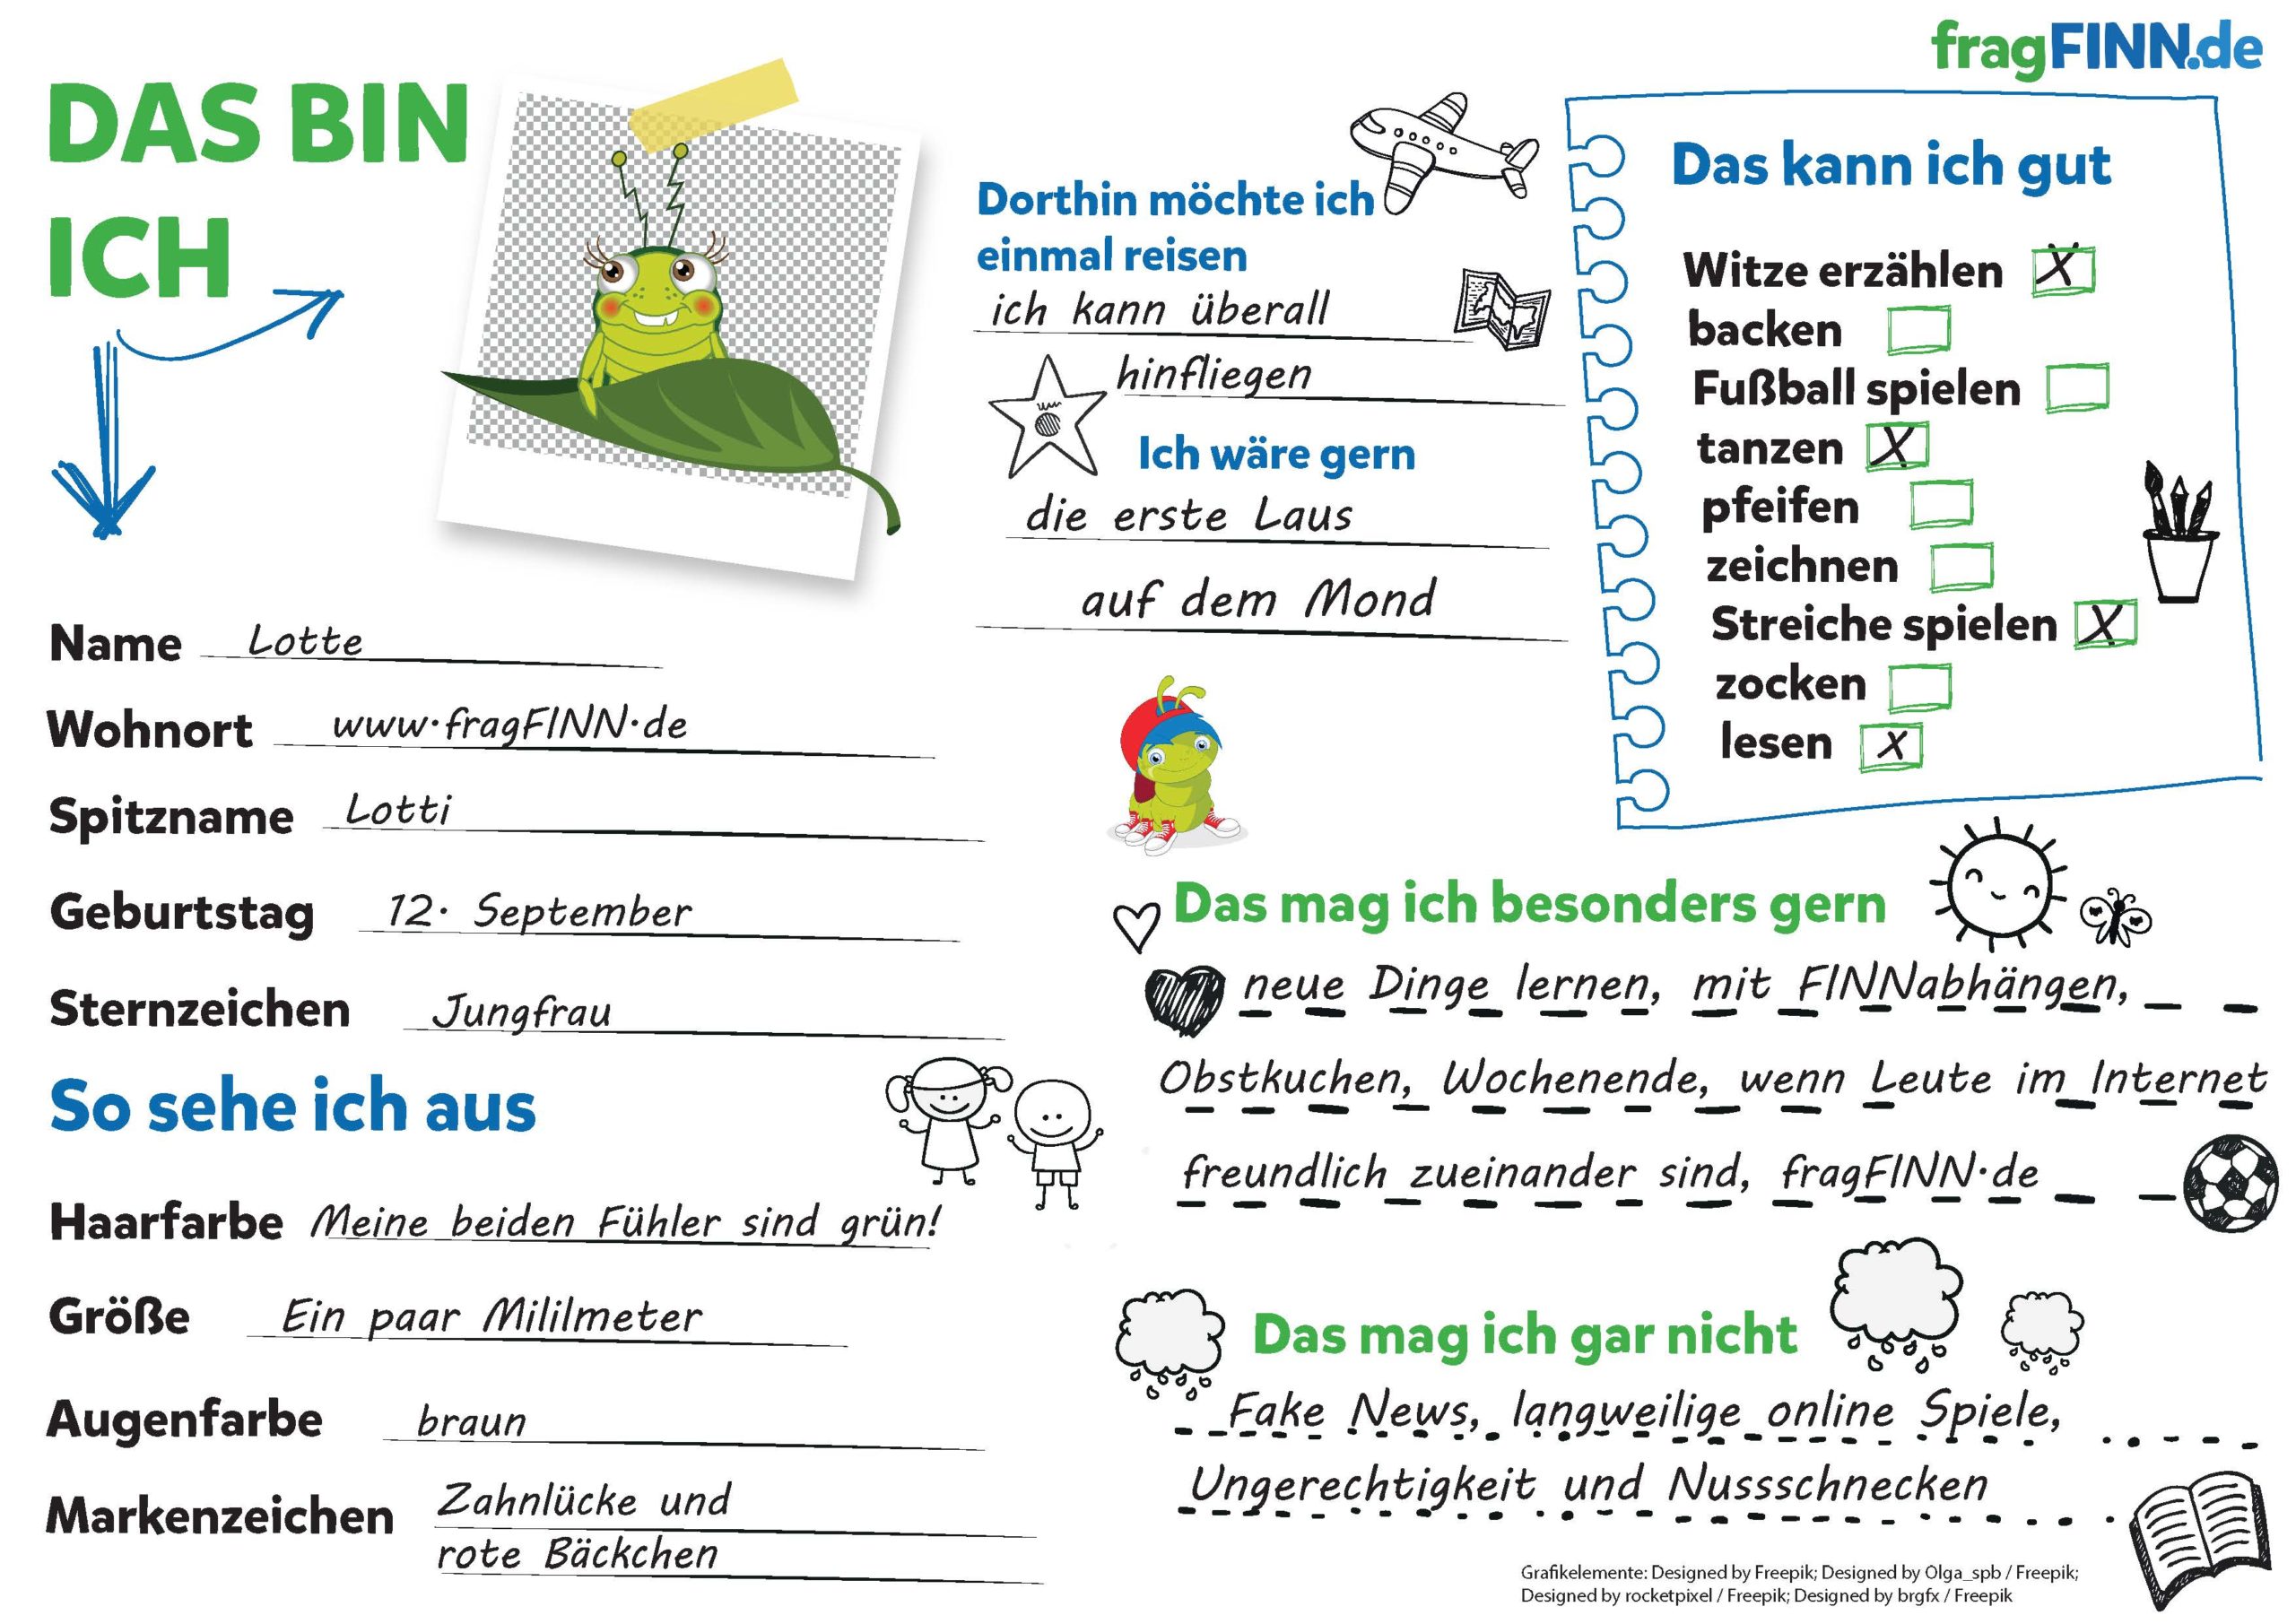 fragFINN.de
DAS BIN
ICH
Name Lotte
Wohnort www.fragFINN.de
Spitzname Lotti
Geburtstag 12. September
Sternzeichen Jungfrau
So sehe ich aus
Haarfarbe Meine beiden Fühler sind grün!
Größe Ein paar Mililmeter
Augenfarbe braun
Markenzeichen Zahnlücke und
rote Bäckchen
Dorthin möchte ich
einmal reisen
ich kann überall
hinfliegen
Ich wäre gern
die erste Laus
auf dem Mond
Das kann ich gut
Witze erzählen X
backen
Fußball spielen
tanzen X
pfeifen
zeichnen
Streiche spielen X
zocken
lesen X
Das mag ich besonders gern
neue Dinge lernen, mit FINNabhängen,
Obstkuchen, Wochenende, wenn Leute im Internet
freundlich zueinander sind, fragFINN.de
Das mag ich gar nicht
Fake News, langweilige online Spiele,
Ungerechtigkeit und Nussschnecken
Grafikelemente: Designed by Freepik; Designed by Olga_spb / Freepik;
Designed by rocketpixel / Freepik; Designed by brgfx / Freepik